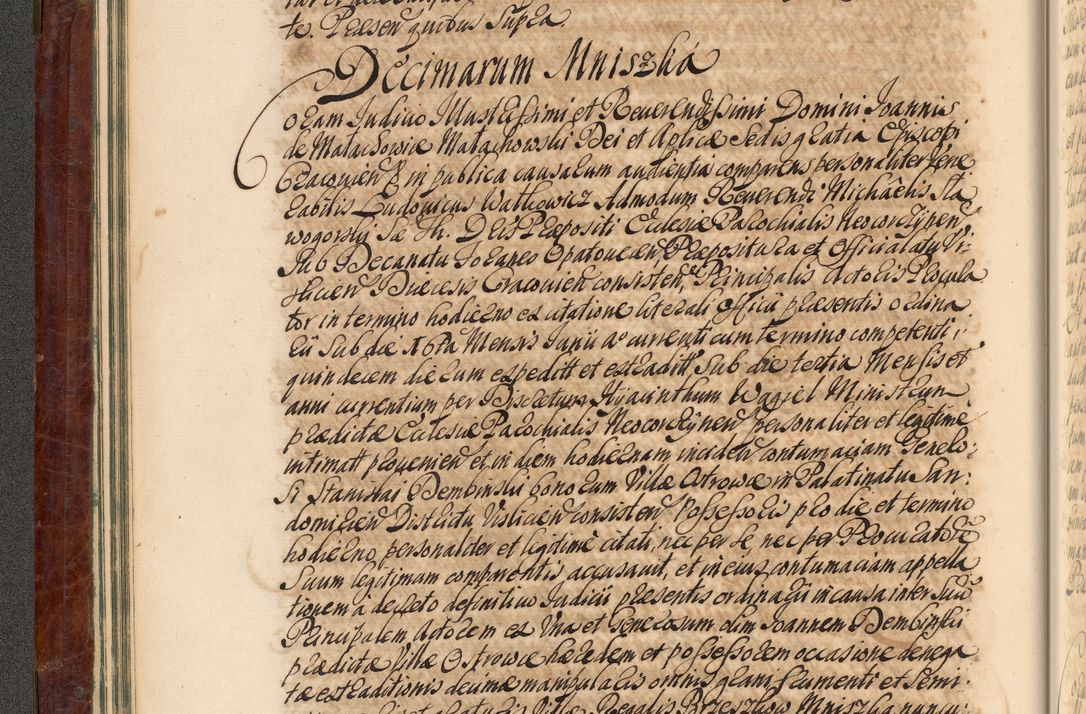 te. Præsen quibus Supra
Decimarum Mniszka
oram Iudicio Illustrissimi et Reuerendissimi Domini Ioannis
de Małachowice Małachowski Dei et Aplicæ Sedis gratia Episcopi
Cracouien in publica causarum audientia comparens personaliter Vene
rabilis Ludouicus Watkowicz Admodum Reuerendi Michaelis Sta
wogorski Præpositi Ecclesiæ Parochialis Neocorczynen
Sub Decanatu Foraneo Opatouecen Præpositura et Officialatu Vi:
slicien Diæcesis Cracouien consisten Principalis actoris Procula
tor in termino hodierno ex citatione literali officii præsentis ordina
rii Sub die 16ta Mensis Iunii ao currenti cum termino competenti
quindecem dierum expeditt et extraditt Sub die tertia Mensis et
anni currentium per Discretum Hyacinthum Wagiel Ministrum
prædictæ Ecclesiæ Parochialis Neocorczynen personaliter et legitime
intimatt prouenien et in diem hodiernam inciden contumaciam Genero:
si Stanislai Dembinski bonorum Villæ Ostrowce in Palatinatu San:
domirien Districtu Vislicien consisten Possessoris pro die et termino
hodierno, personaliter et legitime citati, nec per se, nec per Procuratorem
Suum legitimam comparentis accusauit, et in eius contumaciam appella
tionem a decreto definitiuo Iudicii præsentis ordinarii in causa inter Suũ
Principalem Actorem ex Vna et Generosum olim Ioannem Dembinskii
prædictæ Villæ Ostrowce hæredem et possessorem occasione denega
tæ extraditionis decimæ manipularis omnis gran frumenti et Semi:
Villæ Regalis Brzeszkow Mniszka nuncu: